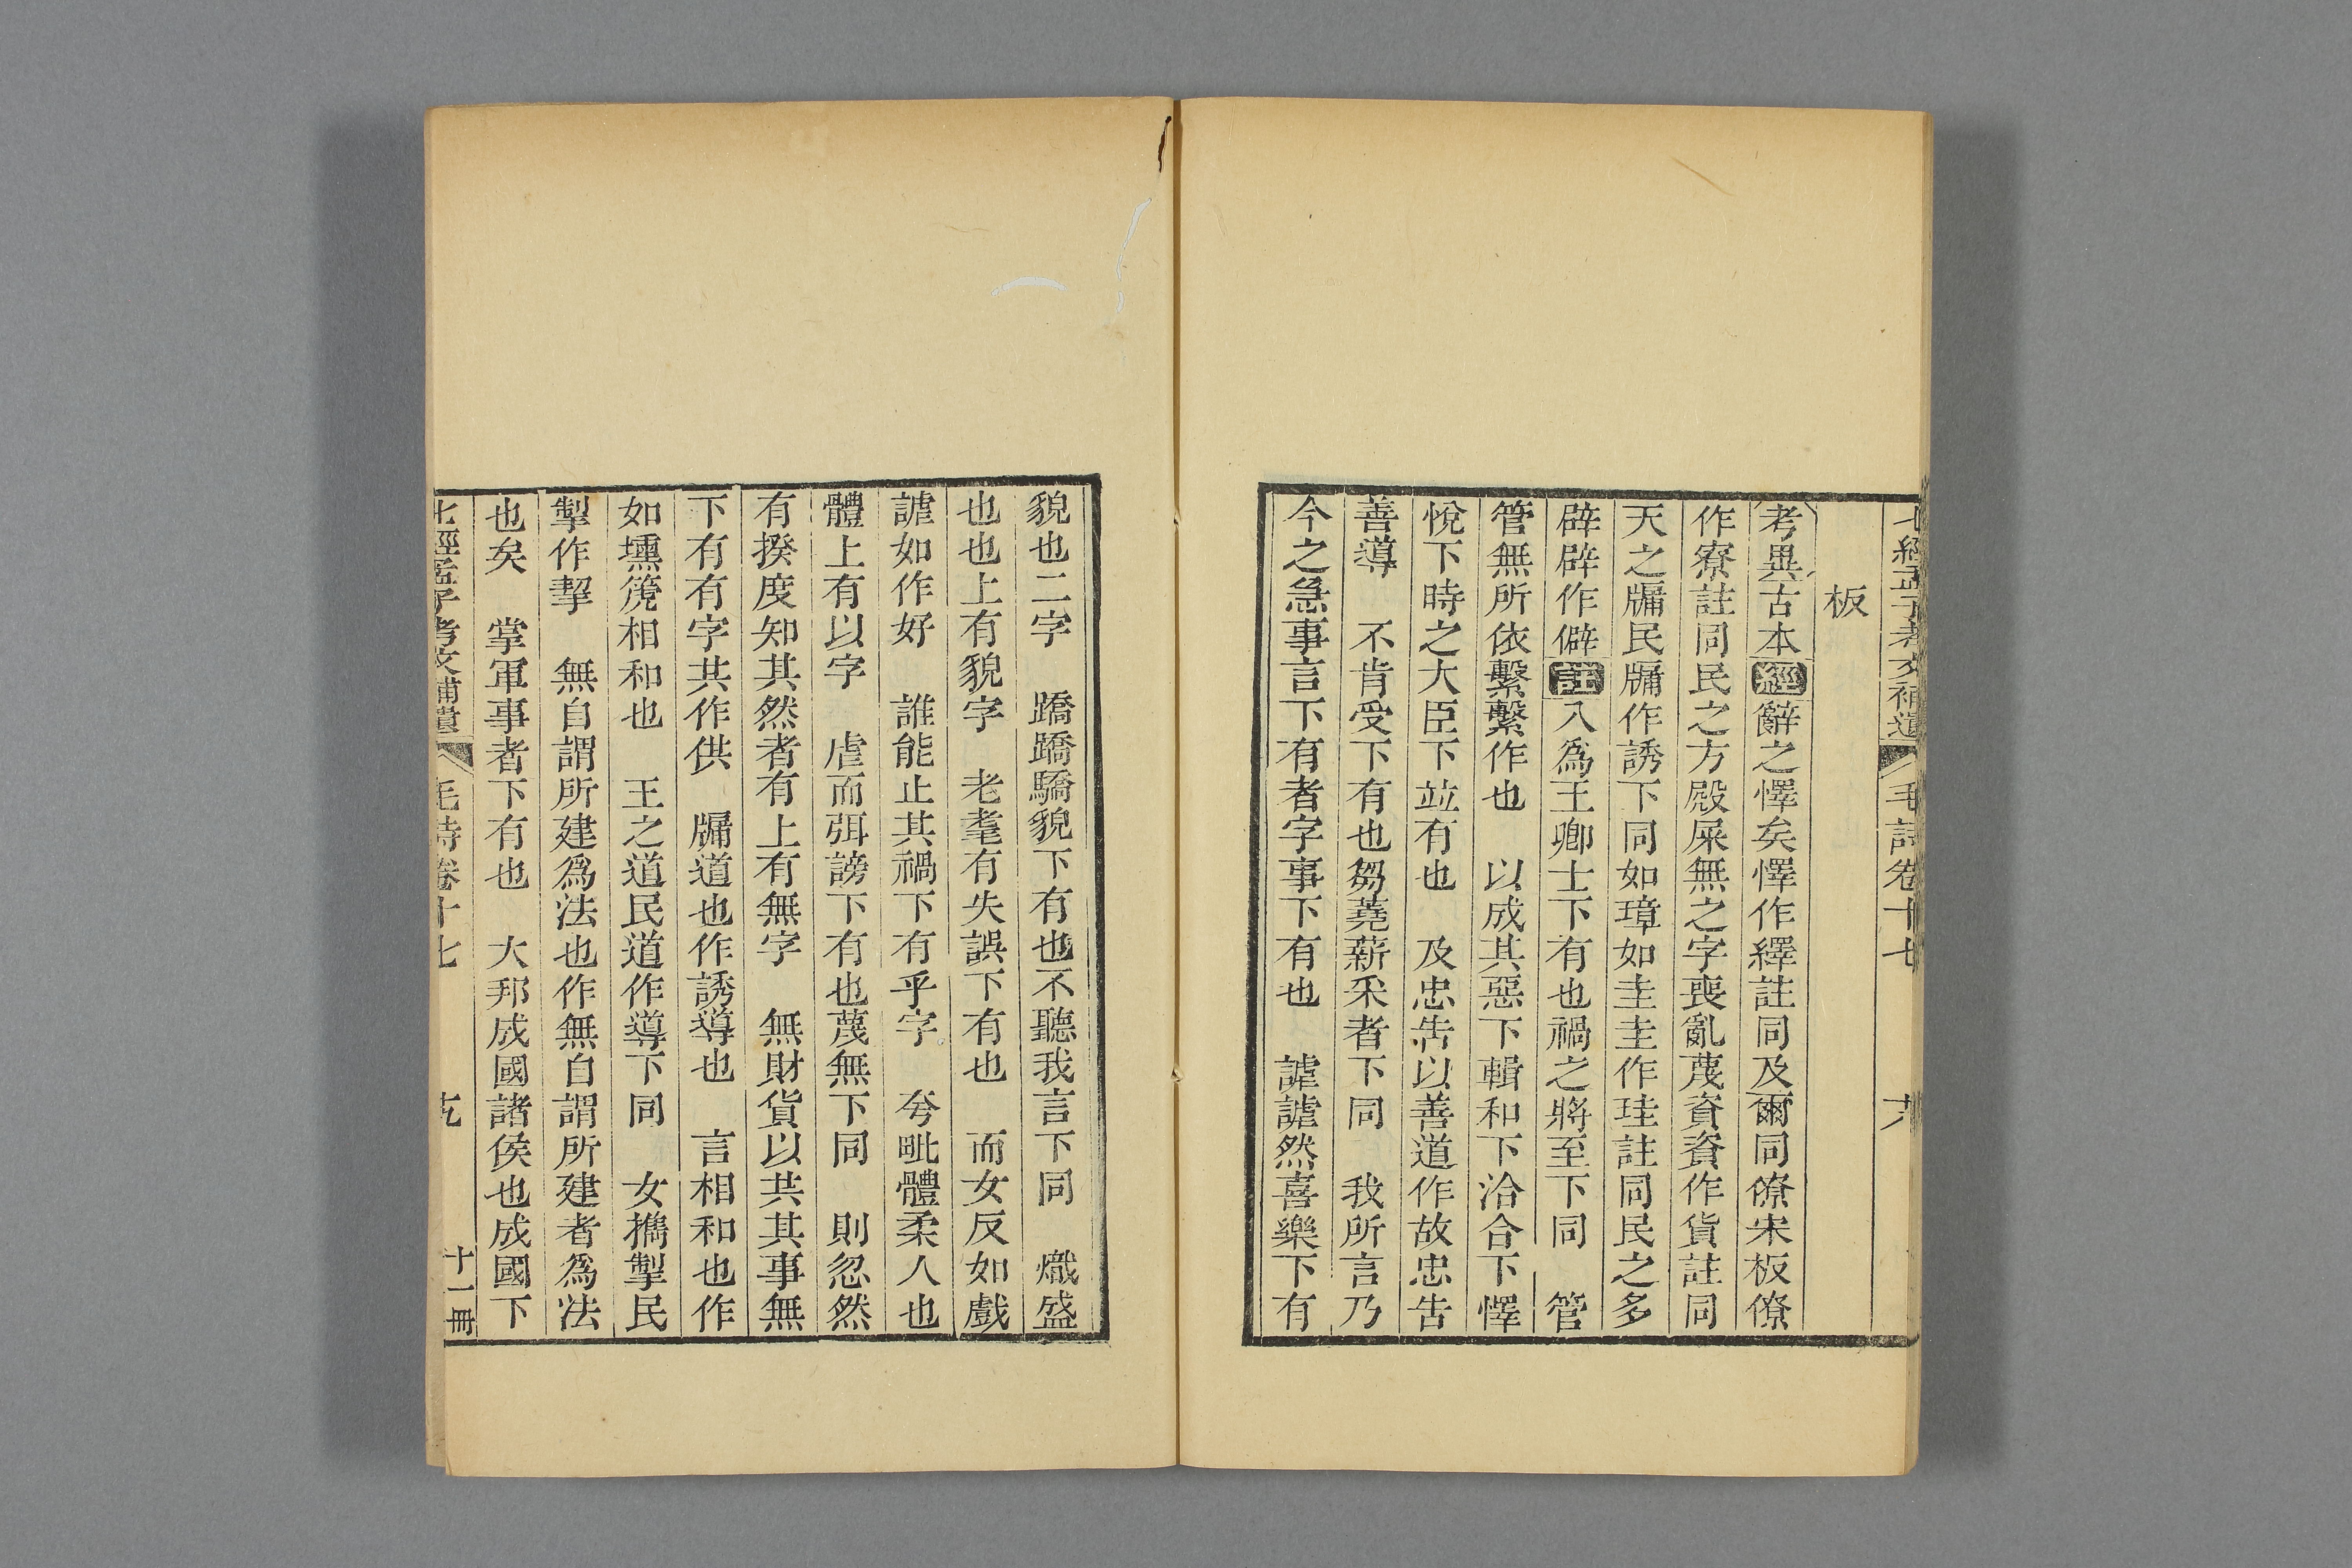 七經孟子考文補遺 毛詩卷十七 六
板
考異古本經辭之懌矣懌作繹註同及爾同僚宋板僚
作寮註同民之方殿屎無之字喪亂蔑資資作貨註同
天之牖民牖作誘下同如璋如圭圭作珪註同民之多
辟辟作僻註入為王卿士下有也禍之將至下同 管
管無所依繫繫作也 以成其惡下輯和下洽合下懌
悅下時之大臣下並有也 及忠告以善道作故忠告
善導 不肯受下有也芻蕘薪采者下同 我所言乃
今之急事言下有者字事下有也 謔謔然喜樂下有
貌也二字 蹻蹻驕貌下有也不聽我言下同 熾盛
也也上有貌字 老耄有失誤下有也 而女反如戲
謔如作好 誰能止其禍下有乎字 夸毗體柔人也
體上有以字 虐而弭謗下有也蔑無下同 則忽然
有揆度知其然者有上有無字 無財貨以共其事無
下有有字共作供 牖道也作誘導也 言相和也作
如壎篪相和也 王之道民道作導下同 女擕掣民
掣作挈 無自謂所建爲法也作無自謂所建者爲法
也矣 掌軍事者下有也 大邦成國諸侯也成國下
七經孟子考文補遺 毛詩卷十七 十一冊